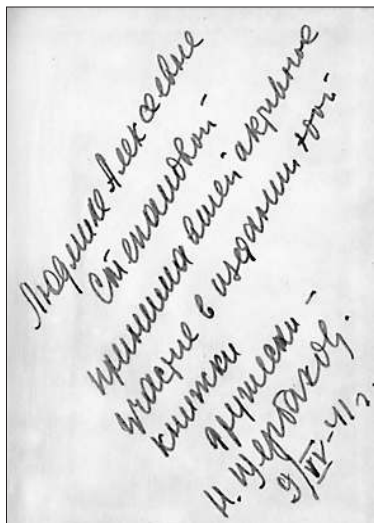 Людмиле Алексеевне
Степановой
принимавшей активное
участие в издании этой
книжки
дружески –
Н. Щербаков.
9/IV-41 г.